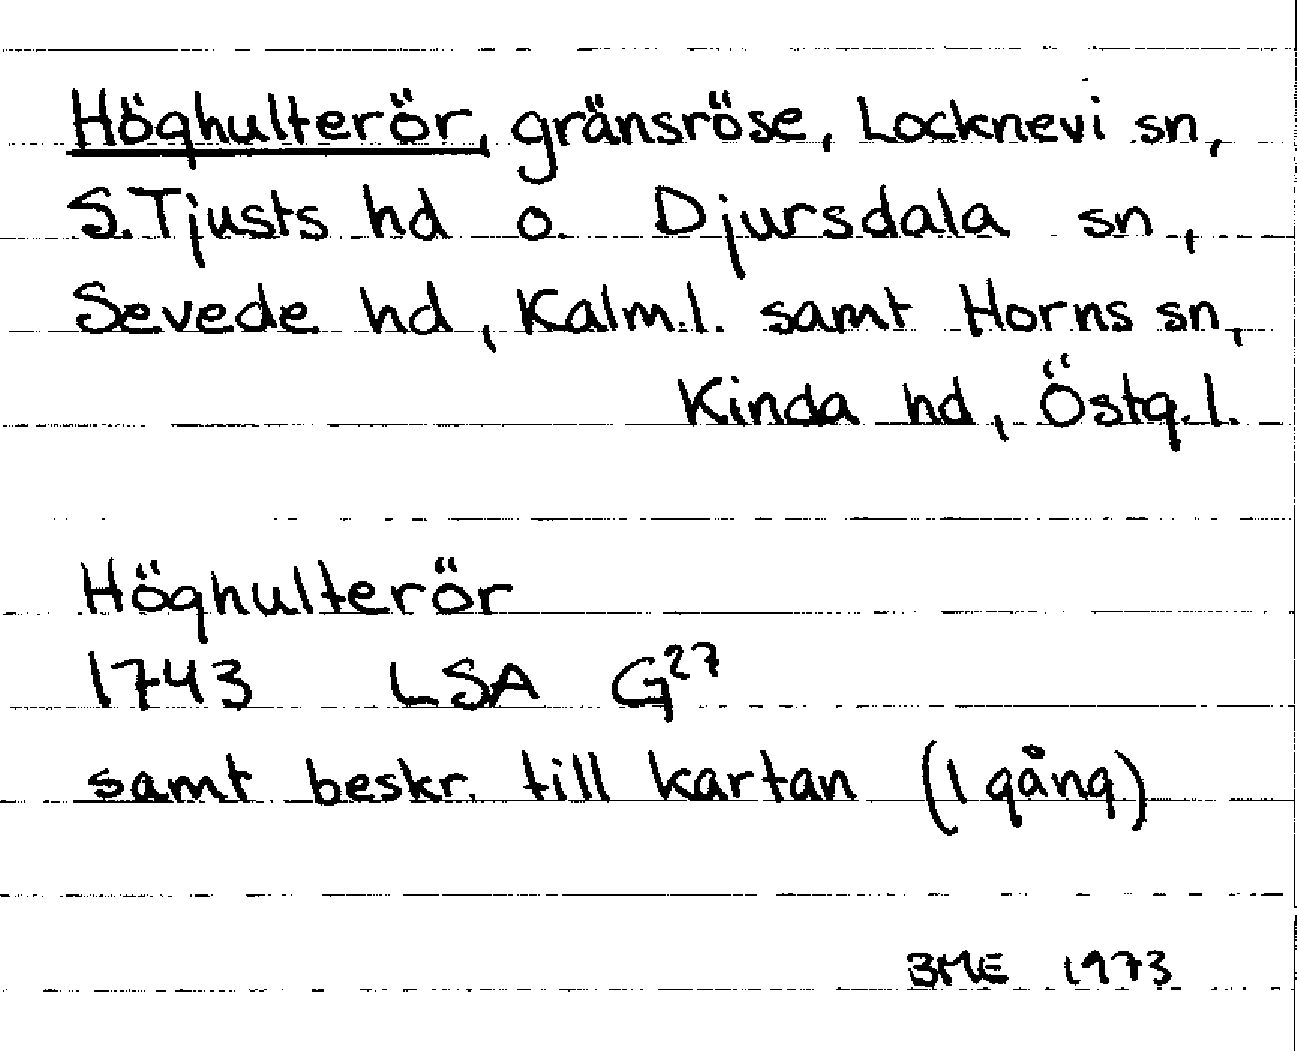 Höghulterör, gränsröse, Locknevi sn,
S. Tjusts hd o. Djursdala sn,
Sevede hd, Kalm.l. samt Horns sn,
Kinda hd, Östg.l.
Höghulterör
1743 LSA G²⁷
samt beskr. till kartan (1 gång)
BME 1973